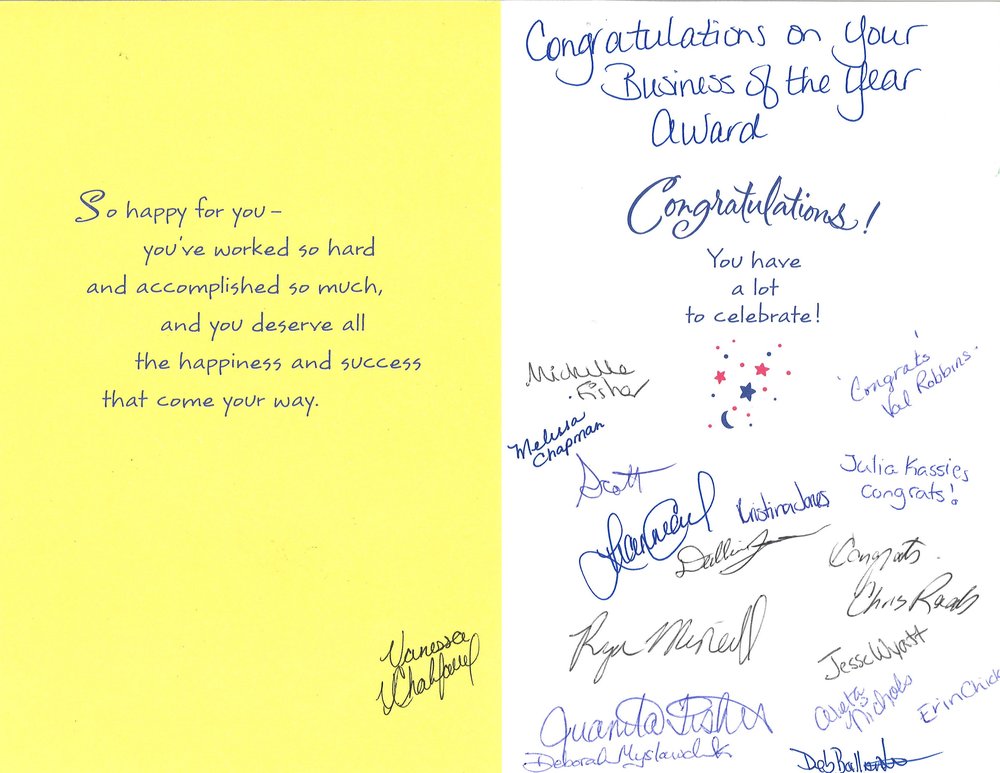 So happy for you –
you've worked so hard
and accomplished so much,
and you deserve all
the happiness and success
that come your way.
Vanessa
Congratulations on your
Business of the Year
Award
Congratulations!
You have
a lot
to celebrate!
Michelle
Fisher
Congrats!
Val Robbins
Melissa
Chapman
Scott
Julia Kassies
Congrats!
Kristina Jones
Congrats
Chris Raab
Ryan
Jesse Wyatt
Nichols
Erin Chick
Juanita Fisher
Deborah
Deb